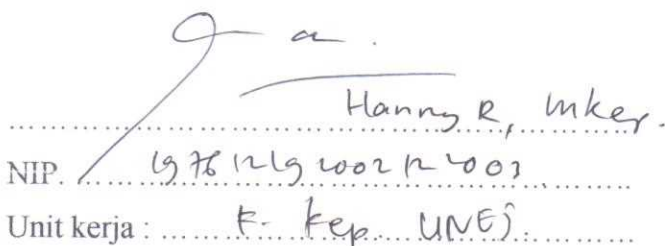 Hanny R, Mkep.
NIP. 19761219 2002 12 2003
Unit kerja : F. Kep. UNEJ